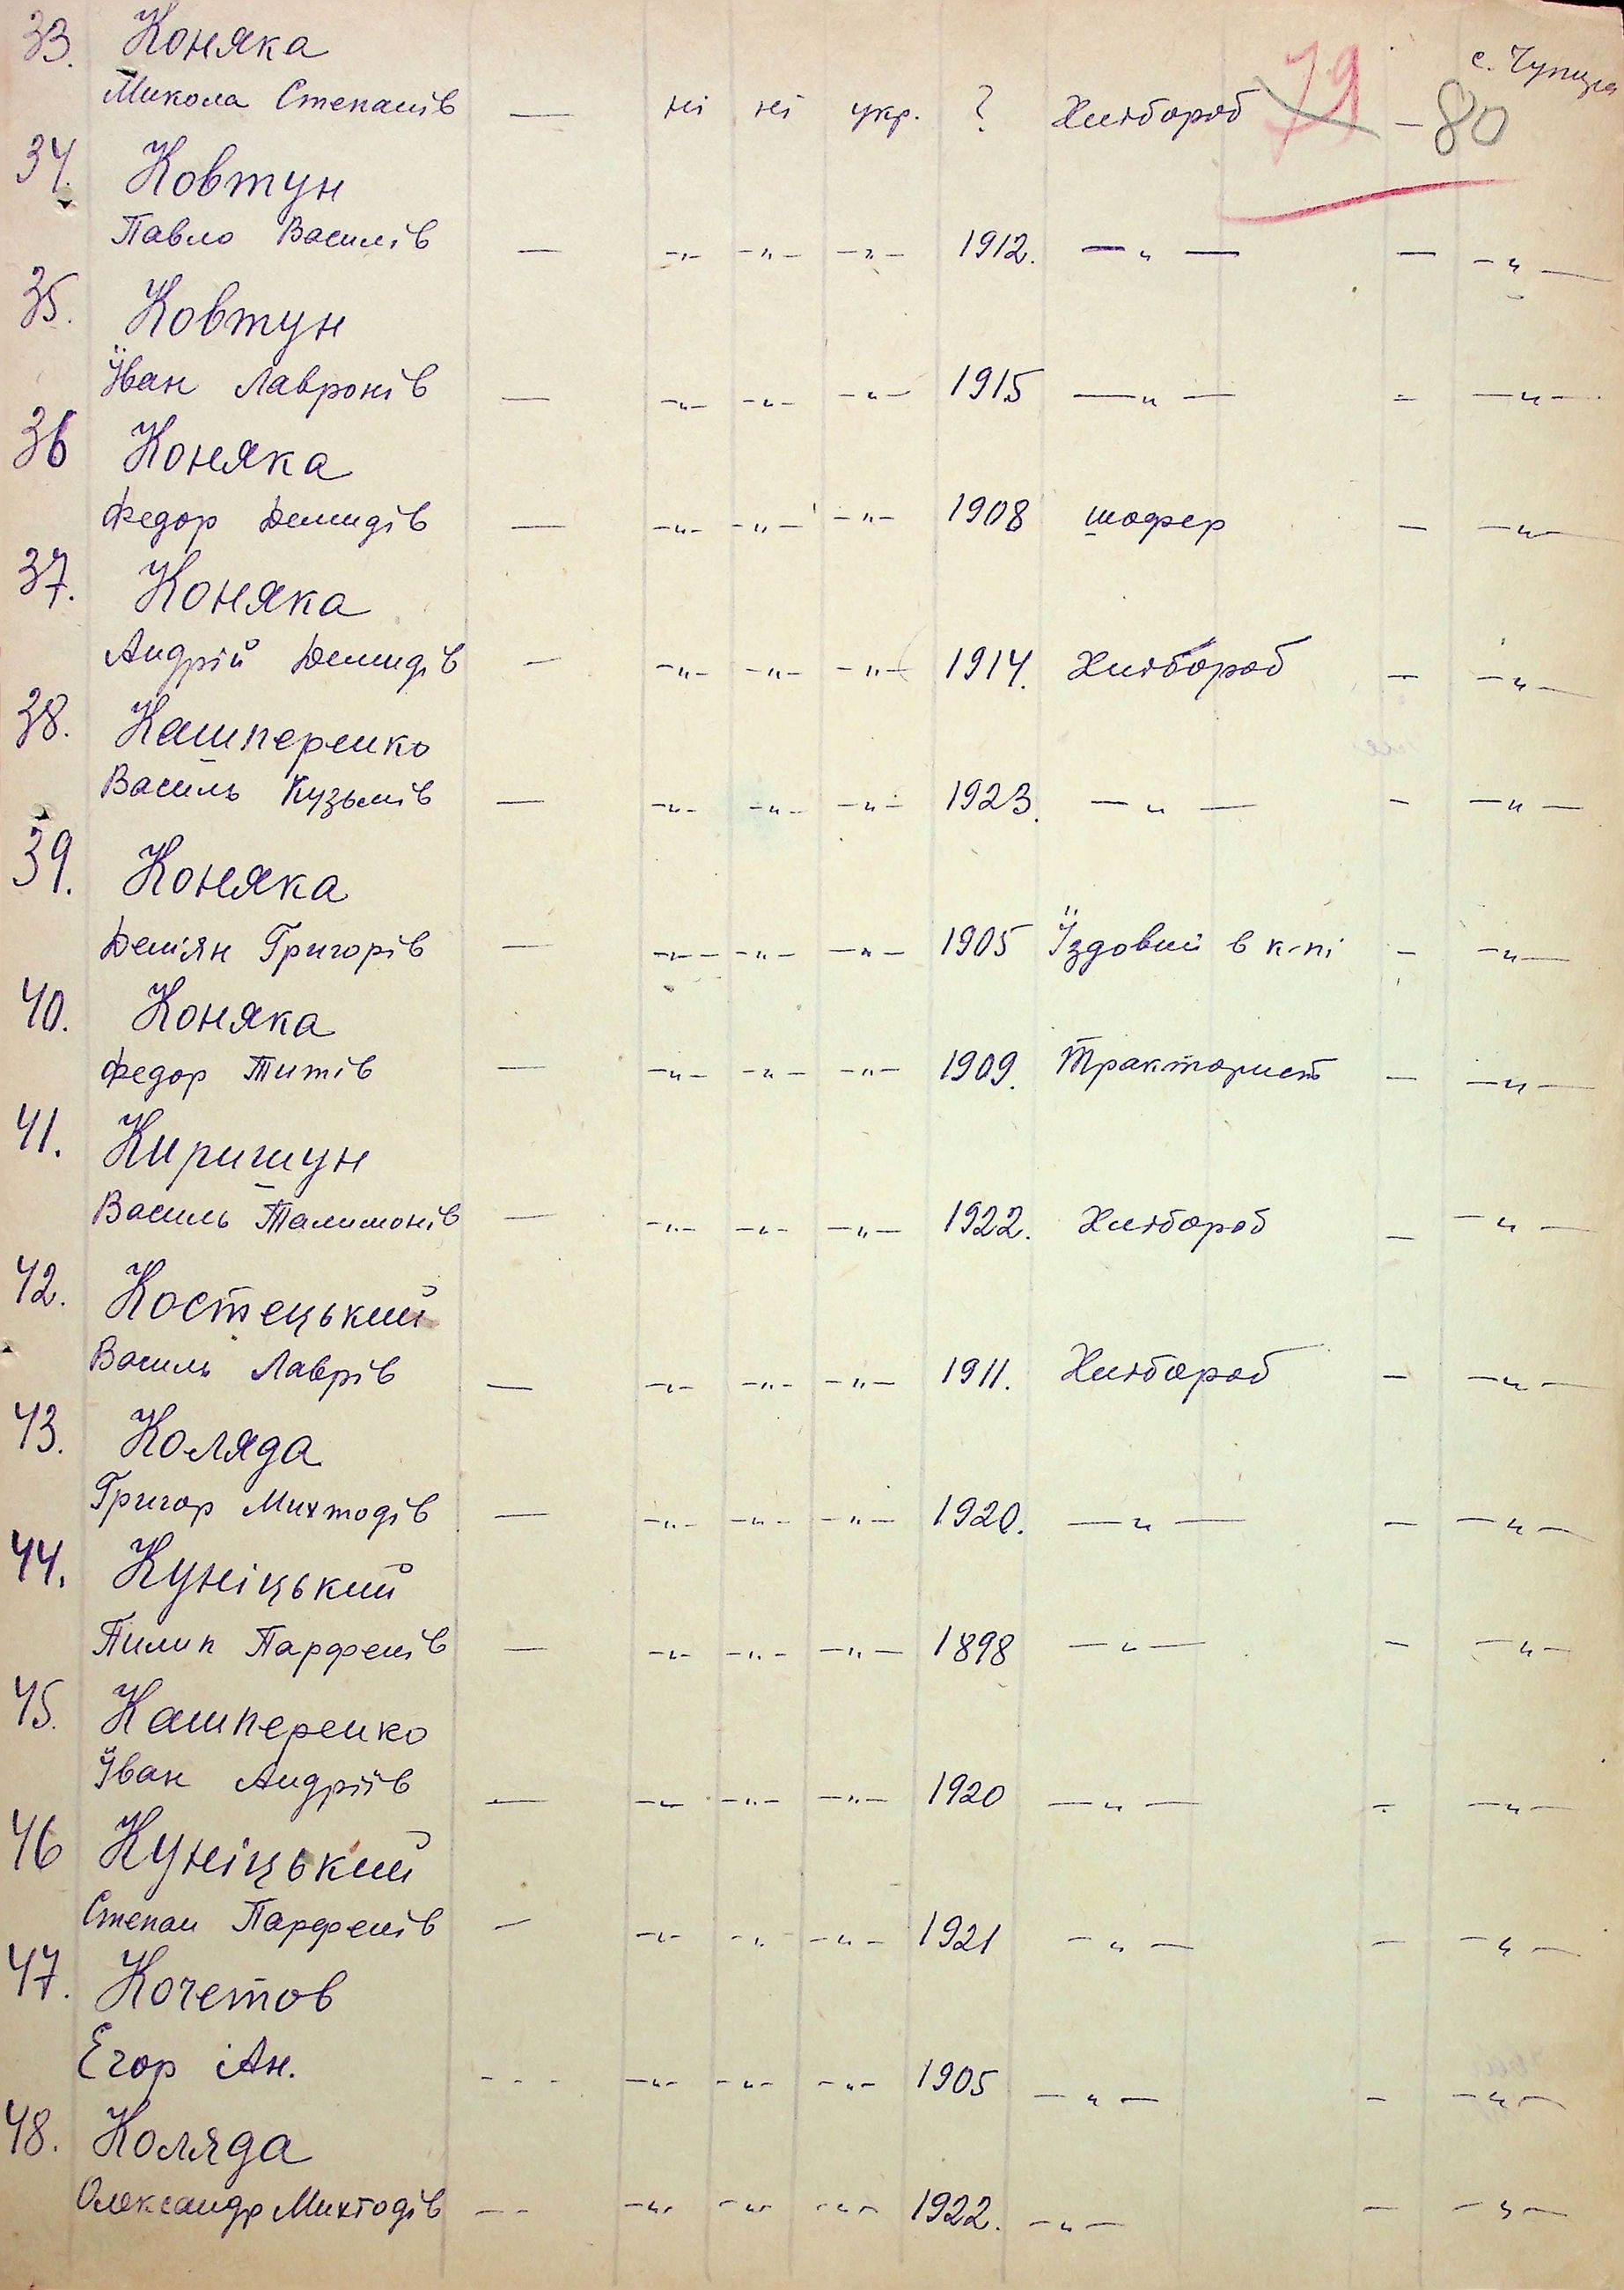 33. Коняка с. Чупира
Микола Степанів — ні ні укр. ? Хлібороб 79 – 80
34. Ковтун
Павло Василів — –„– –„– –„– 1912. –„– – –„–
35. Ковтун
Їван Лавронів — –„– –„– –„– 1915 –„– – –„–
36 Коняка
Федор Демидів — –„– –„– –„– 1908 шофер – –„–
37. Коняка
Андрій Демидів — –„– –„– –„– 1914. Хлібороб – –„–
38. Кашперенко
Василь Кузьмів — –„– –„– –„– 1923. –„– – –„–
39. Коняка
Деміян Григорів — –„– –„– –„– 1905 Їздовий в к-пі – –„–
40. Коняка
Федор Титів — –„– –„– –„– 1909. Тракторист – –„–
41. Киришун
Василь Талимонів — –„– –„– –„– 1922. Хлібороб – –„–
42. Костецький
Василь Лаврів — –„– –„– –„– 1911. Хлібороб – –„–
43. Коляда
Григор Михтодів — –„– –„– –„– 1920. –„– – –„–
44. Куніцький
Пилип Парфенів — –„– –„– –„– 1898 –„– – –„–
45. Кашперенко
Їван Андріїв — –„– –„– –„– 1920 –„– – –„–
46 Куніцький
Степан Парфенів — –„– –„– –„– 1921 –„– – –„–
47. Кочетов
Егор Ан. - - - –„– –„– –„– 1905 –„– – –„–
48. Коляда
Олександр Михтодів – – –„– –„– –„– 1922. –„– – –„–